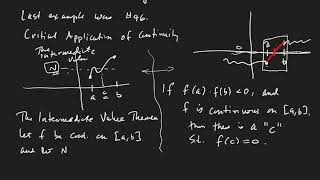 Last example was #96.
Critical Application of Continuity
The Intermediate
Value
N
a c b
The Intermediate Value Theorem
let f be cont. on [a,b]
and let N
If f(a)·f(b)<0, and
f is continuous on [a,b],
then there is a "c"
s.t. f(c)=0.
0
a
b